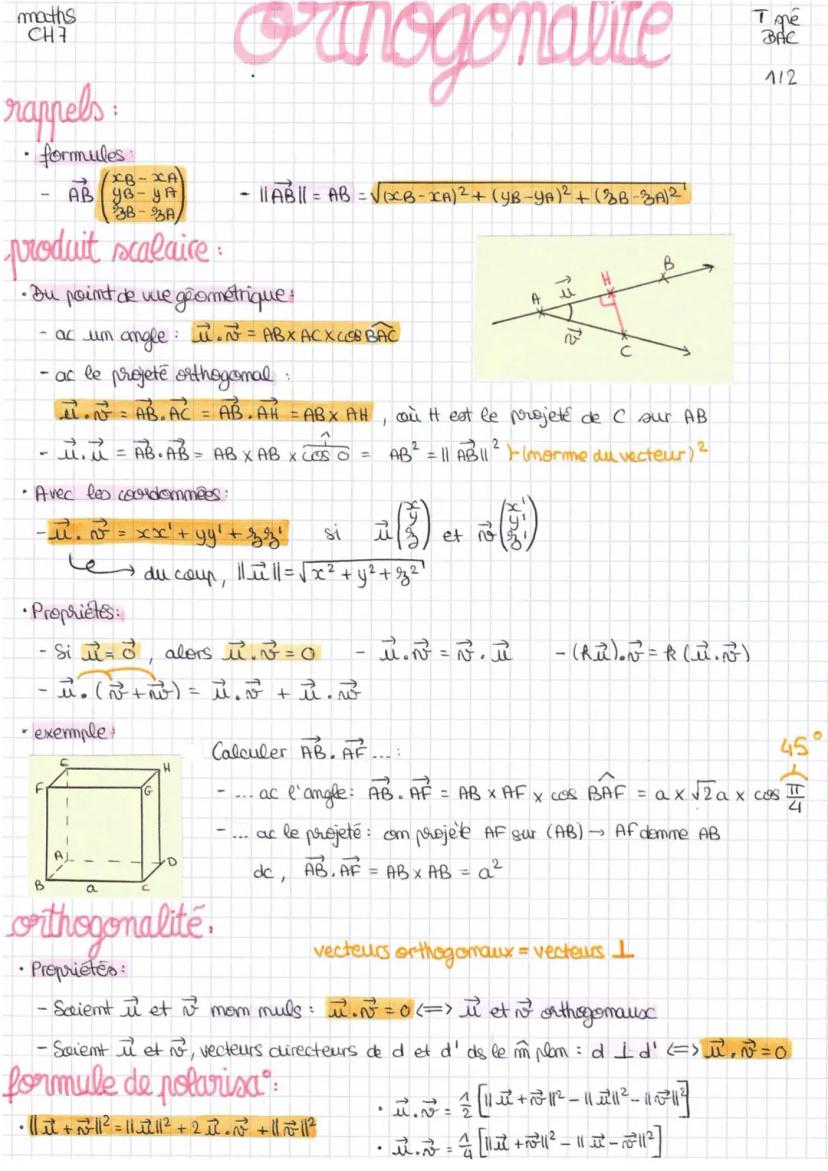 maths
CH7
orthogonalité
T spé
BAC
1/2
rappels :
• formules :
- →AB (xB - xA
yB - yA
zB - zA)
- ||→AB|| = AB = √(xB-xA)² + (yB-yA)² + (zB-zA)²
produit scalaire :
• Du point de vue géométrique :
- ac un angle : →u . →v = AB x AC x cos BAC
- ac le projeté orthogonal :
→u . →v = →AB . →AC = →AB . →AH = AB x AH , où H est le projeté de C sur AB
- →u . →u = →AB . →AB = AB x AB x cos 0 = AB² = ||→AB||² (norme du vecteur)²
1
A
→u
H
B
→v
C
• Avec les coordonnées :
- →u . →v = xx' + yy' + zz' si →u (x y z) et →v (x' y' z')
du coup, ||→u|| = √x² + y² + z²
• Propriétés :
- Si →u = →0 , alors →u . →v = 0 - →u . →v = →v . →u - (k→u) . →v = k (→u . →v)
- →u . (→v + →w) = →u . →v + →u . →w
• exemple :
E
H
F
G
A
D
B
a
C
Calculer →AB . →AF ... :
45°
- ... ac l'angle : →AB . →AF = AB x AF x cos BAF = a x √2a x cos π/4
- ... ac le projeté : on projète AF sur (AB) → AF donne AB
dc , →AB . →AF = AB x AB = a²
orthogonalité :
vecteurs orthogonaux = vecteurs ⊥
• Propriétés :
- Soient →u et →v non nuls : →u . →v = 0 <=> →u et →v orthogonaux
- Soient →u et →v, vecteurs directeurs de d et d' ds le m̂ plan : d ⊥ d' <=> →u . →v = 0
formule de polarisa° :
• ||→u + →v||² = ||→u||² + 2 →u . →v + ||→v||²
• →u . →v = 1/2 [||→u + →v||² - ||→u||² - ||→v||²]
• →u . →v = 1/4 [||→u + →v||² - ||→u - →v||²]